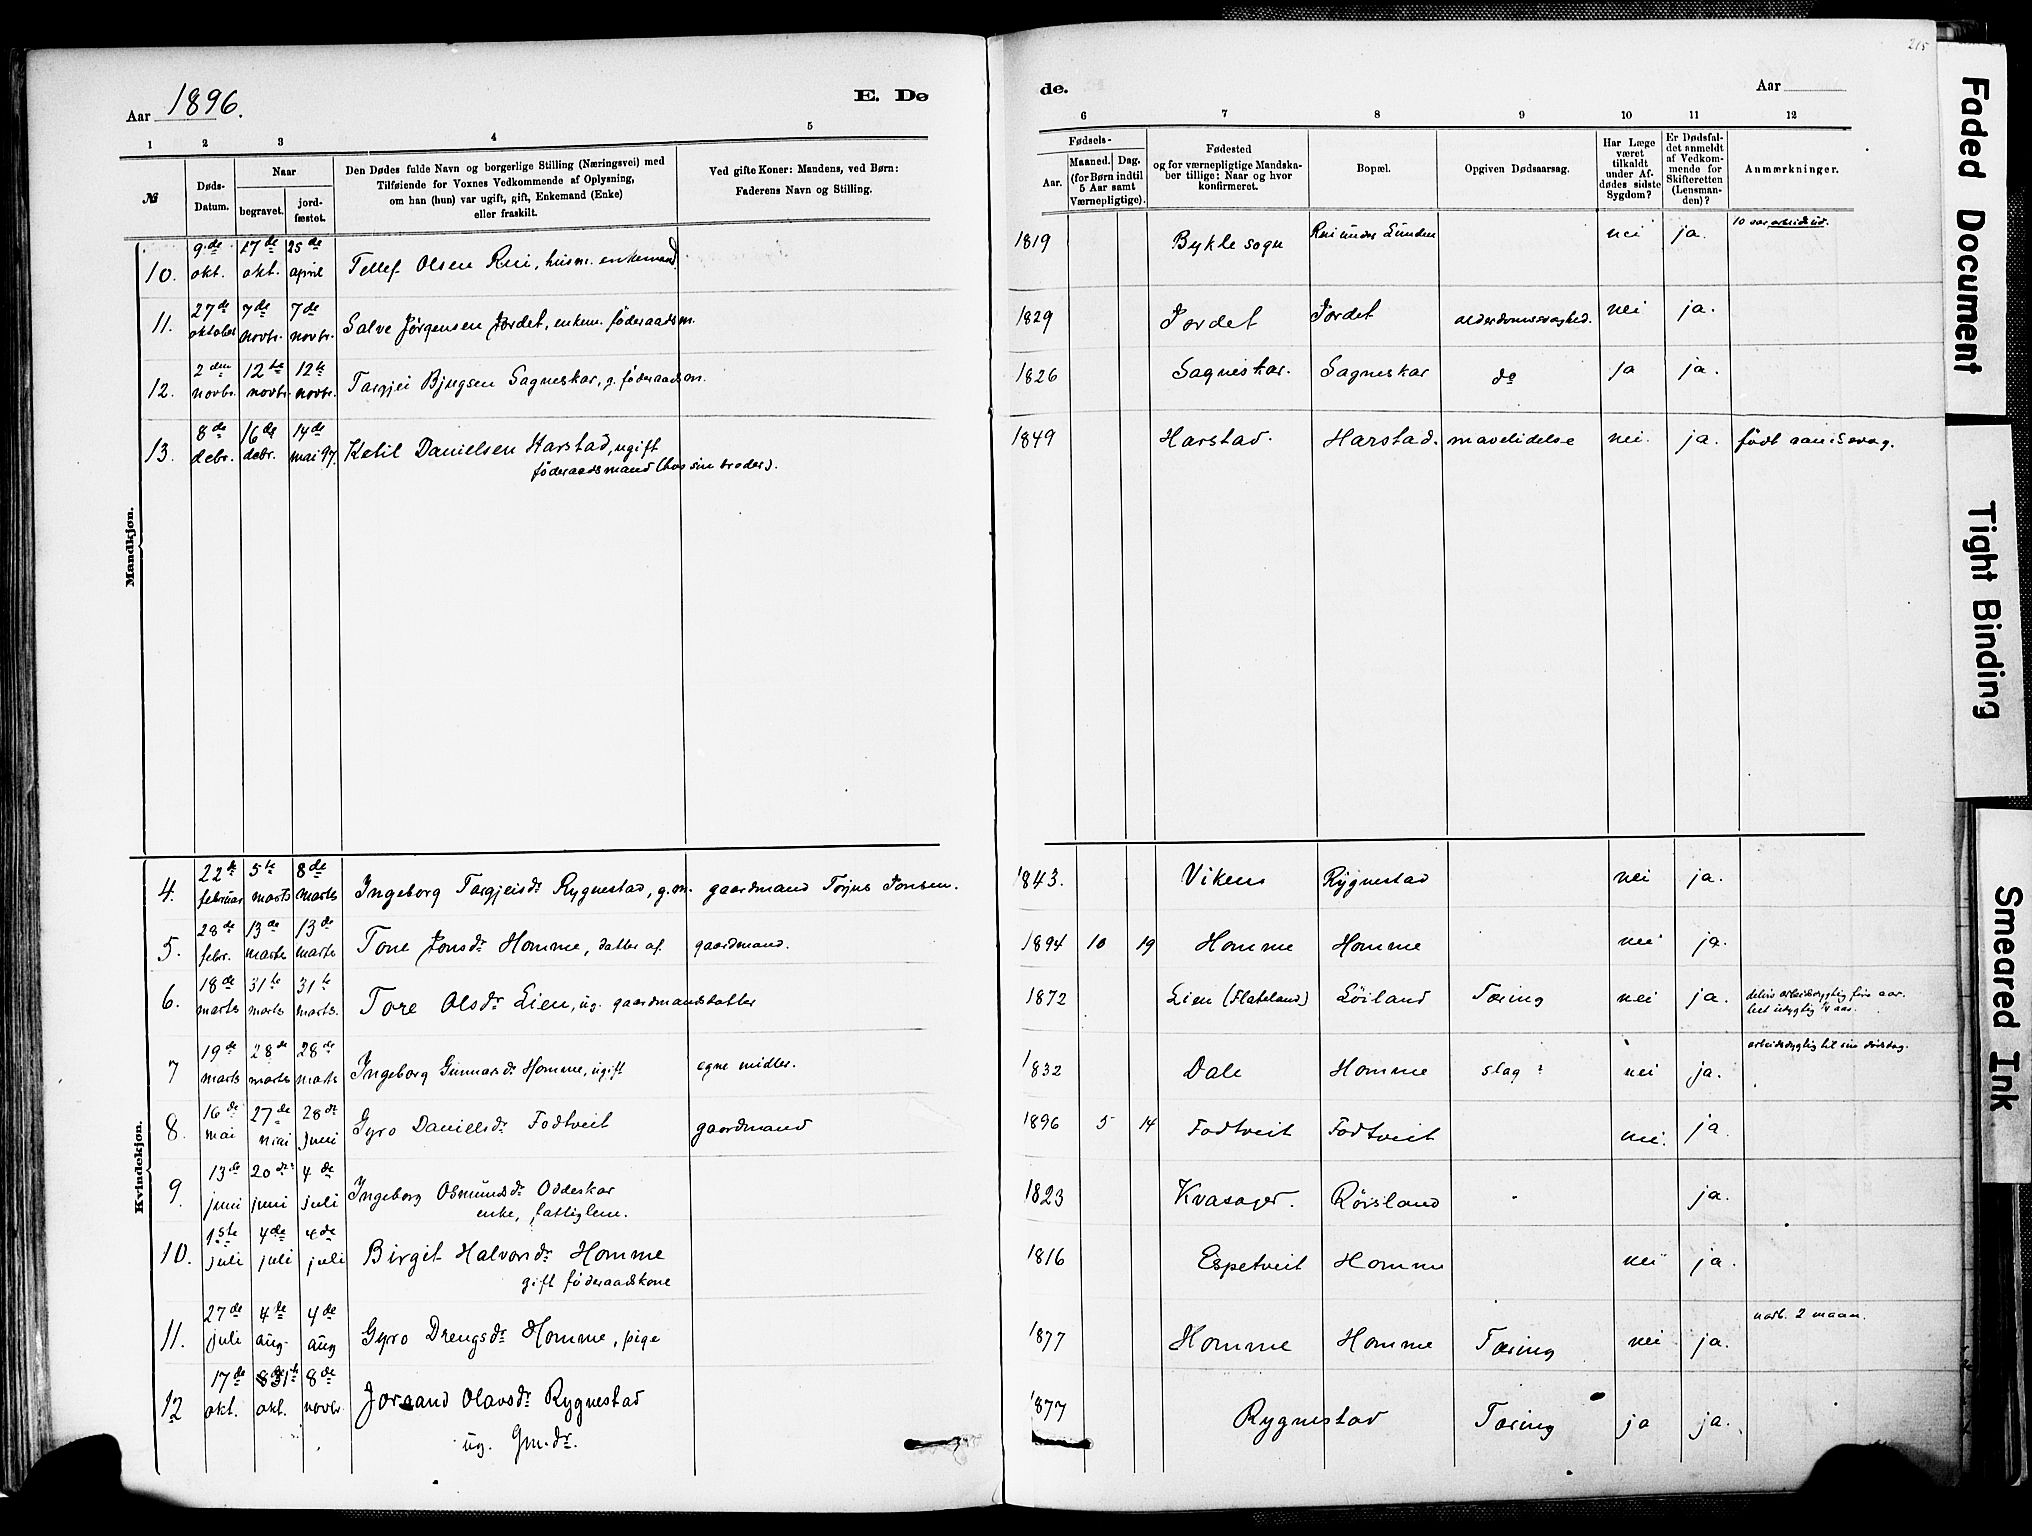 215
Aar 1896.
E. Dø
de.
Aar
1 2 3 4 5
6 7 8 9 10 11 12
№
Døds-
Datum.
Naar
begravet.
jord-
fæstet.
Den Dødes fulde Navn og borgerlige Stilling (Næringsvei) med
Tilføiende for Voxnes Vedkommende af Oplysning,
om han (hun) var ugift, gift, Enkemand (Enke)
eller fraskilt.
Ved gifte Koner: Mandens, ved Børn:
Faderens Navn og Stilling.
Fødsels-
Aar.
Maaned. Dag.
(for Børn indtil
5 Aar samt
Værnepligtige).
Fødested
og for værnepligtige Mandska-
ber tillige: Naar og hvor
konfirmeret.
Bopæl.
Opgiven Dødsaarsag.
Har Læge
været
tilkaldt
under Af-
dødes sidste
Sygdom?
Er Dødsfal-
det anmeldt
af Vedkom-
mende for
Skifteretten
(Lensman-
den)?
Anmærkninger.
Mandkjøn.
10. 9de okt. 17de okt. 25de april Tellef Olsen Rui, husm. enkemand. 1819 Bykle sogn Rui under Lunden nei ja. 10 aar arbeidsud.
11. 27de oktober 7de novbr. 7de novbr. Salve Jørgensen Jordet, enkem. føderaadsm. 1829 Jordet Jordet alderdomssvaghed. nei ja.
12. 2den novbr. 12te novbr. 12te novbr. Targjei Bjugsen Sagneskar, g. føderaadsm. 1826 Sagneskar. Sagneskar do ja ja.
13. 8de debr. 16de debr. 14de mai 97. Ketil Danielsen Harstad, ugift 1849 Harstad. Harstad. mavelidelse nei. ja. født aandssvag.
føderaadsmand (hos sin broder).
Kvindekjøn.
4. 22de februar 5te marts 8de marts Ingeborg Targjeisdr Rygnestad, g. m. gaardmand Torjus Jonsen. 1843. Viken Rygnestad nei ja.
5. 28de febr. 13de marts 13de marts Tone Jonsdr Homme, datter af gaardmand. 1894 10 19 Homme Homme nei ja.
6. 18de marts 31te marts 31te marts. Tore Olsdr Lien, ug. gaardmandsdatter 1872 Lien (Flateland) Löiland Tæring nei ja. delvis arbeidsdygtig fire aar.
helt udygtig 1/4 aar.
7 19de marts 28de marts 28de marts Ingeborg Gunnarsdr Homme, ugift egne midler. 1832 Dale Homme slag? nei ja. arbeidsdygtig til sin dødsdag.
8. 16de mai 27de mai 28de juni Gyro Danielsdr Fodtveit gaardmand 1896 5 14 Fodtveit Fodtveit nei. ja.
9 13de juni 20de juni 4de juli Ingeborg Osmundsdr Oddeskar 1823 Kvasager. Röisland ja.
enke, fattiglem.
10. 1ste juli 4de juli 4de juli Birgit Halvorsdr Homme 1816 Espetveit Homme nei ja.
gift føderaadskone
11. 27de juli 4de aug. 4de aug Gyro Drengsdr Homme, pige 1877 Homme Homme Tæring nei ja. uarb. 2 maan.
12 17de okt. 31te okt. 8de novbr. Joraand Olavsdr Rygnestad 1877 Rygnestad Tæring ja ja.
ug. Gm.dr.
Faded Document
Tight Binding
Smeared Ink